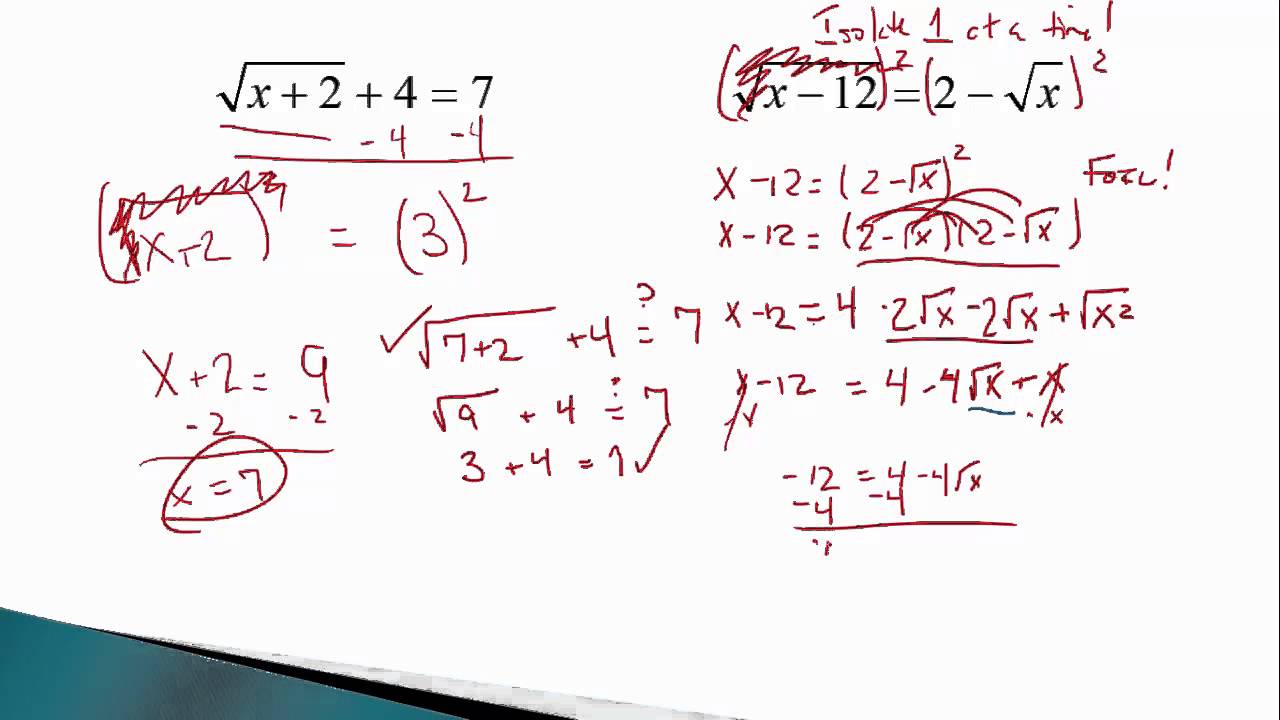 √x + 2 + 4 = 7
-4 -4
(√x+2)² = (3)²
x+2 = 9
-2 -2
x = 7
✓√7+2 + 4 ≟ 7
√9 + 4 ≟ 7
3 + 4 = 7 ✓
Isolate 1 at a time!
(√x − 12)² = (2 − √x)²
x -12 = (2 -√x)²
Foil!
x -12 = (2 -√x)(2 -√x)
x -12 = 4 -2√x -2√x + √x²
x -12 = 4 -4√x + x
-x -x
-12 = 4 -4√x
-4 -4